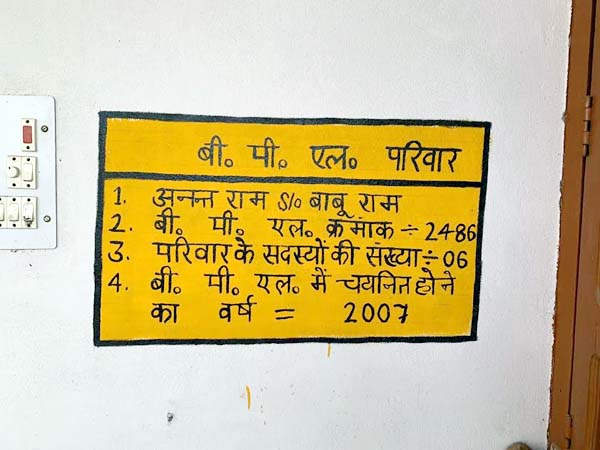 बी॰ पी॰ एल॰ परिवार
1. अनन्त राम S/o बाबू राम
2. बी॰ पी॰ एल॰ क्रमांक ÷ 2486
3. परिवार के सदस्यों की संख्या ÷ 06
4. बी॰ पी॰ एल॰ में चयनित होने
का वर्ष = 2007